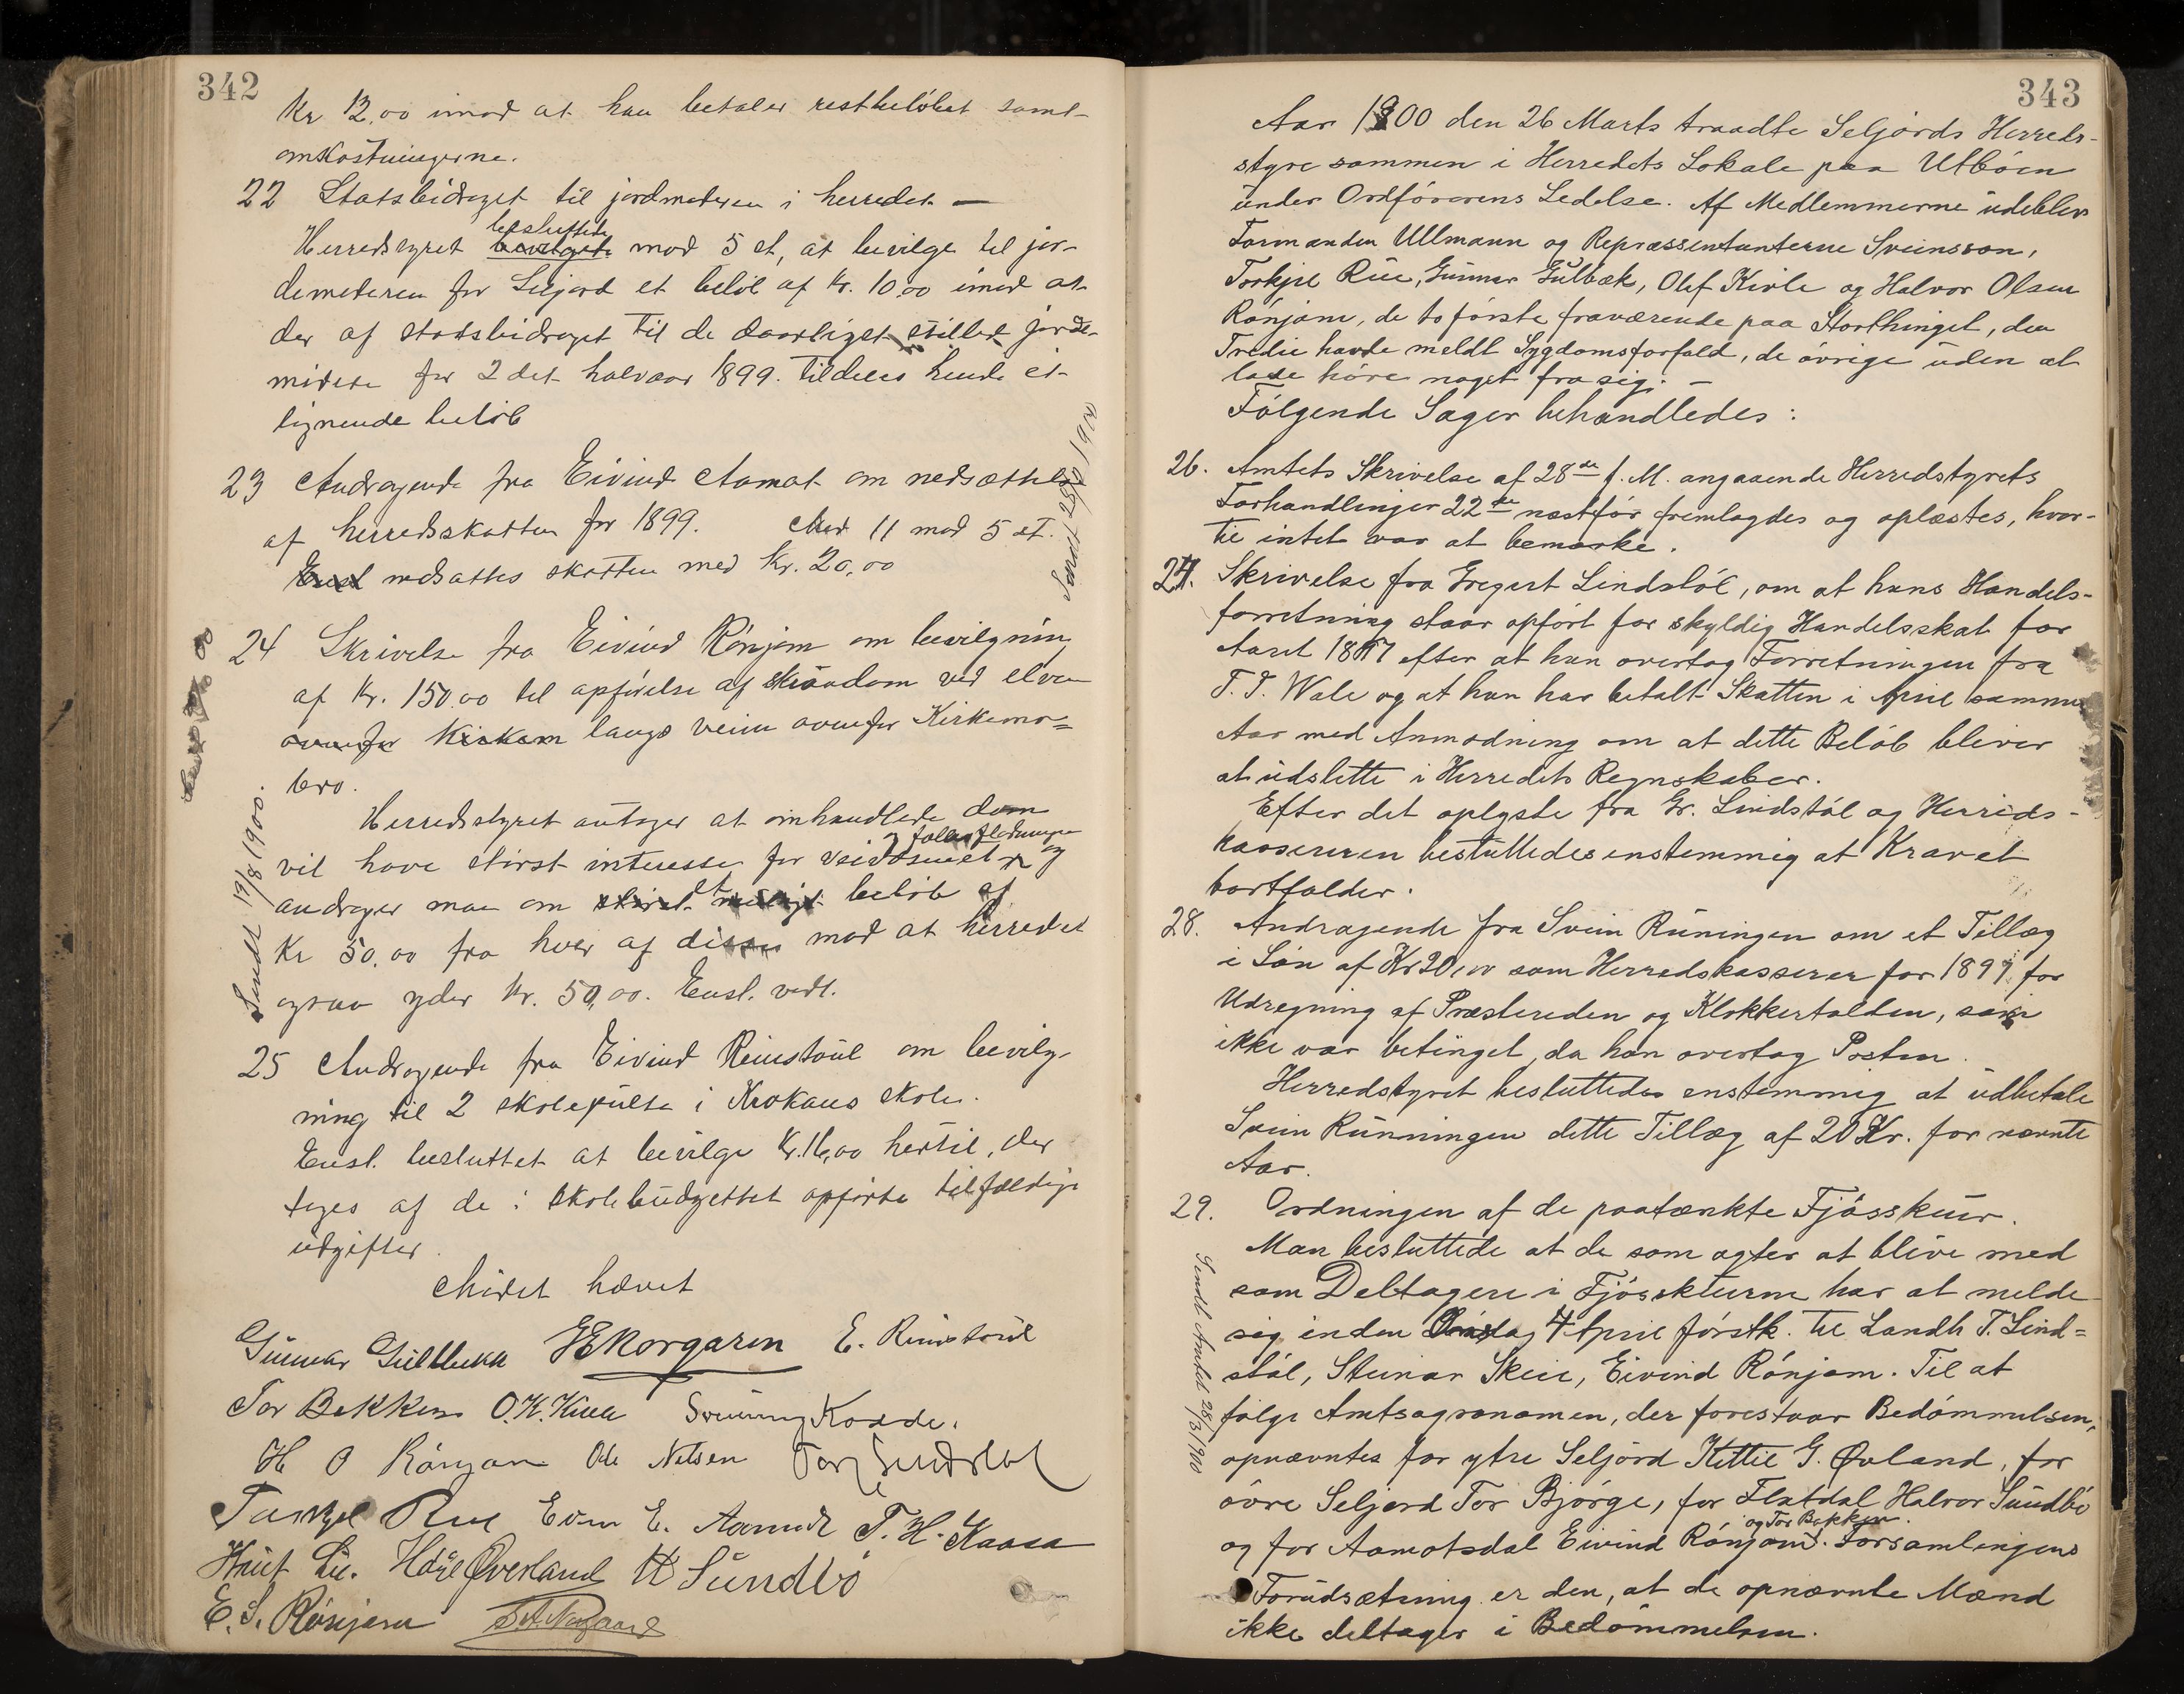 342
Kr 12,00 imod at han betaler restbeløbet samt
omkostningerne.
22 Statsbidraget til jordmoderen i herredet —
besluttede
Herredstyret bevilget mod 5 st, at bevilge til jor-
demoderen for Seljord et beløb af kr. 10,00 imod at
der af statsbidraget til de daarligst stillet jorde-
mødre for 2det halvaar 1899. tildeles hende et
lignende beløb
23 Andragende fra Eivind Aamot om nedsættelse
af herredsskatten for 1899. Med 11 mod 5 st.
Enst nedsattes skatten med kr. 20,00
24 Skrivelse fra Eivind Rónjom om bevilgning
af kr. 150.00 til opførelse af skraadam ved elven
ovenfor Kirken langs veien ovenfor Kirkemo=
bro.
Herredsstyret antager at omhandlede dam
vil have størst interesse for veivæsnet og
andrager man om et beløb af
Kr 50.00 fra hver af disse mod at herredet
ogsaa yder kr. 50,00. Enst. vedt.
Sendt 19/8 1900.
25 Andragende fra Eivind Reinstaul om bevilg-
ning til 2 skolepulte i Krokaas skole.
Enst. besluttet at bevilge kr. 16,00 hertil, der
tages af de i skolebudgettet opførte tilfældige
udgifter.
Mødet hævet
Gunnar Gulbæk E. Reinstaul
Tor Bakken O. K. Kivle Sveinung Kaasa.
H O Rónjom Ole Nilsen
Torkjel Rue Eivin E. Aamodt T. H. Kaasa
Knut Lie. Hæge Øverland H Sundbø
E. S. Rónjom
343
Aar 1900 den 26 Marts traadte Seljórds Herreds-
styre sammen i Herredets Lokale paa Utbóen
under Ordfórerens Ledelse. Af Medlemmerne udeblev
Formanden Ullmann og Repræssentanterne Sveinsson,
Torkjel Rue, Gunnar Gulbæk, Olef Kivle og Halvor Olsen
Rónjom, de to fórste fraværende paa Storthinget, den
Tredie havde meldt Sygdomsforfald, de óvrige uden at
lade hóre noget fra sig. —
Fólgende Sager behandledes:
26. Amtets Skrivelse af 28de f. M. angaaende Herredstyrets
Forhandlinger 22de næstfór fremlagdes og oplæstes, hvor-
til intet var at bemærke.
27. Skrivelse fra Gregert Lindstól, om at hans Handels-
forretning staar opfórt for skyldig Handelsskat for
Aaret 1897 efter at han overtog Forretningen fra
T. T. Wale og at han har betalt Skatten i April samme
Aar med Anmodning om at dette Belób bliver
at udslette i Herredets Regnskaber.
Efter det oplyste fra Gr. Lindstól og Herreds-
kassereren besluttedes enstemmig at Kravet
bortfalder.
28. Andragende fra Svein Runingen om et Tillæg
i Lón af Kr 20,00 som Herredskasserer for 1897 for
Udregning af Præstereden og Klokkertolden, som
ikke var betinget, da han overtog Posten.
Herredstyret besluttedes enstemmig at udbetale
Svein Runningen dette Tillæg af 20 Kr. for nævnte
Aar.
29. Ordningen af de paatænkte Fjósskuer.
Man besluttede at de som agter at blive med
som Deltagere i Fjósskuerne har at melde
sig inden Onsdag 4 April fórstk. til Landh T. Lind=
stól, Steinar Skeie, Eivind Rónjom. Til at
fólge Amtsagronomen, der forestaar Bedómmelsen,
opnævntes for ytre Seljord Kittil G. Øvland, for
óvre Seljord Tor Bjórge, for Flatdal Halvor Sundbó
og Tor Bakken.
og for Aamotsdal Eivind Rónjom. Forsamlingens
Forudsætning er den, at de opnævnte Mænd
ikke deltager i Bedómmelsen.
Sendt Amtet 28/3 1900